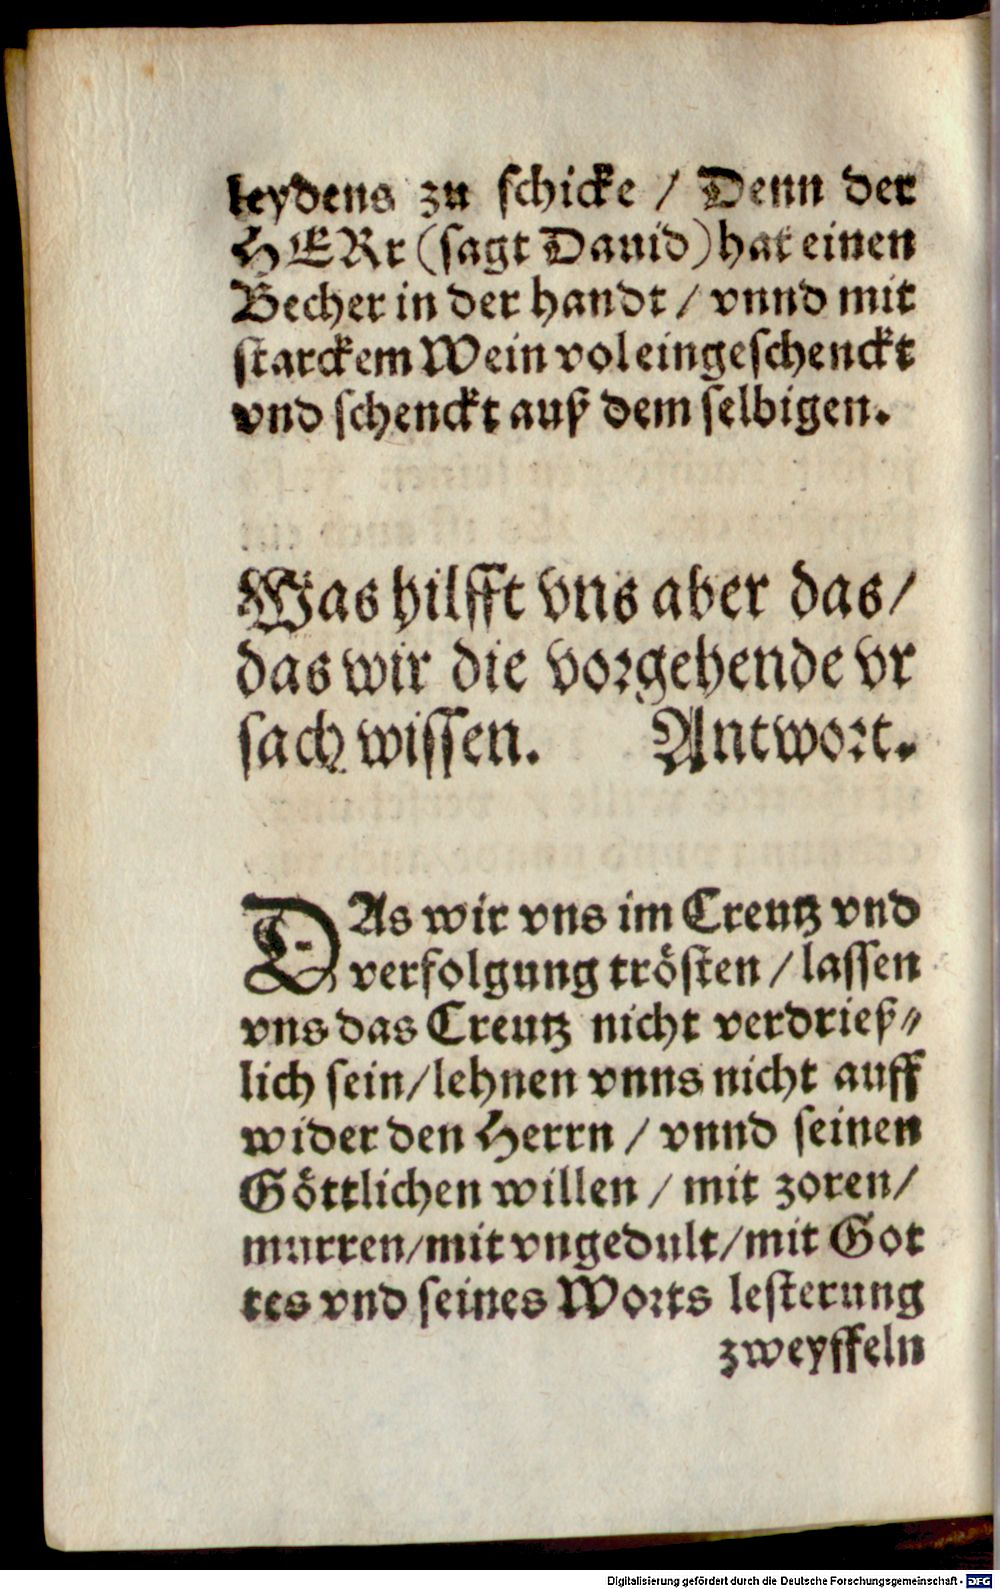 leydens zu schicke / Denn der
HERr (sagt Dauid) hat einen
Becher in der handt / vnnd mit
starckem Wein vol eingeschenckt
vnd schenckt auß dem selbigen.
Was hilfft vns aber das/
das wir die vorgehende vr
sach wissen. Antwort.
DAs wir vns im Creutz vnd
verfolgung trösten / lassen
vns das Creutz nicht verdrieß⸗
lich sein/lehnen vnns nicht auff
wider den Herrn / vnnd seinen
Göttlichen willen / mit zoren/
murren/mit vngedult/mit Got
tes vnd seines Worts lesterung
zweyffeln
Digitalisierung gefördert durch die Deutsche Forschungsgemeinschaft - DFG